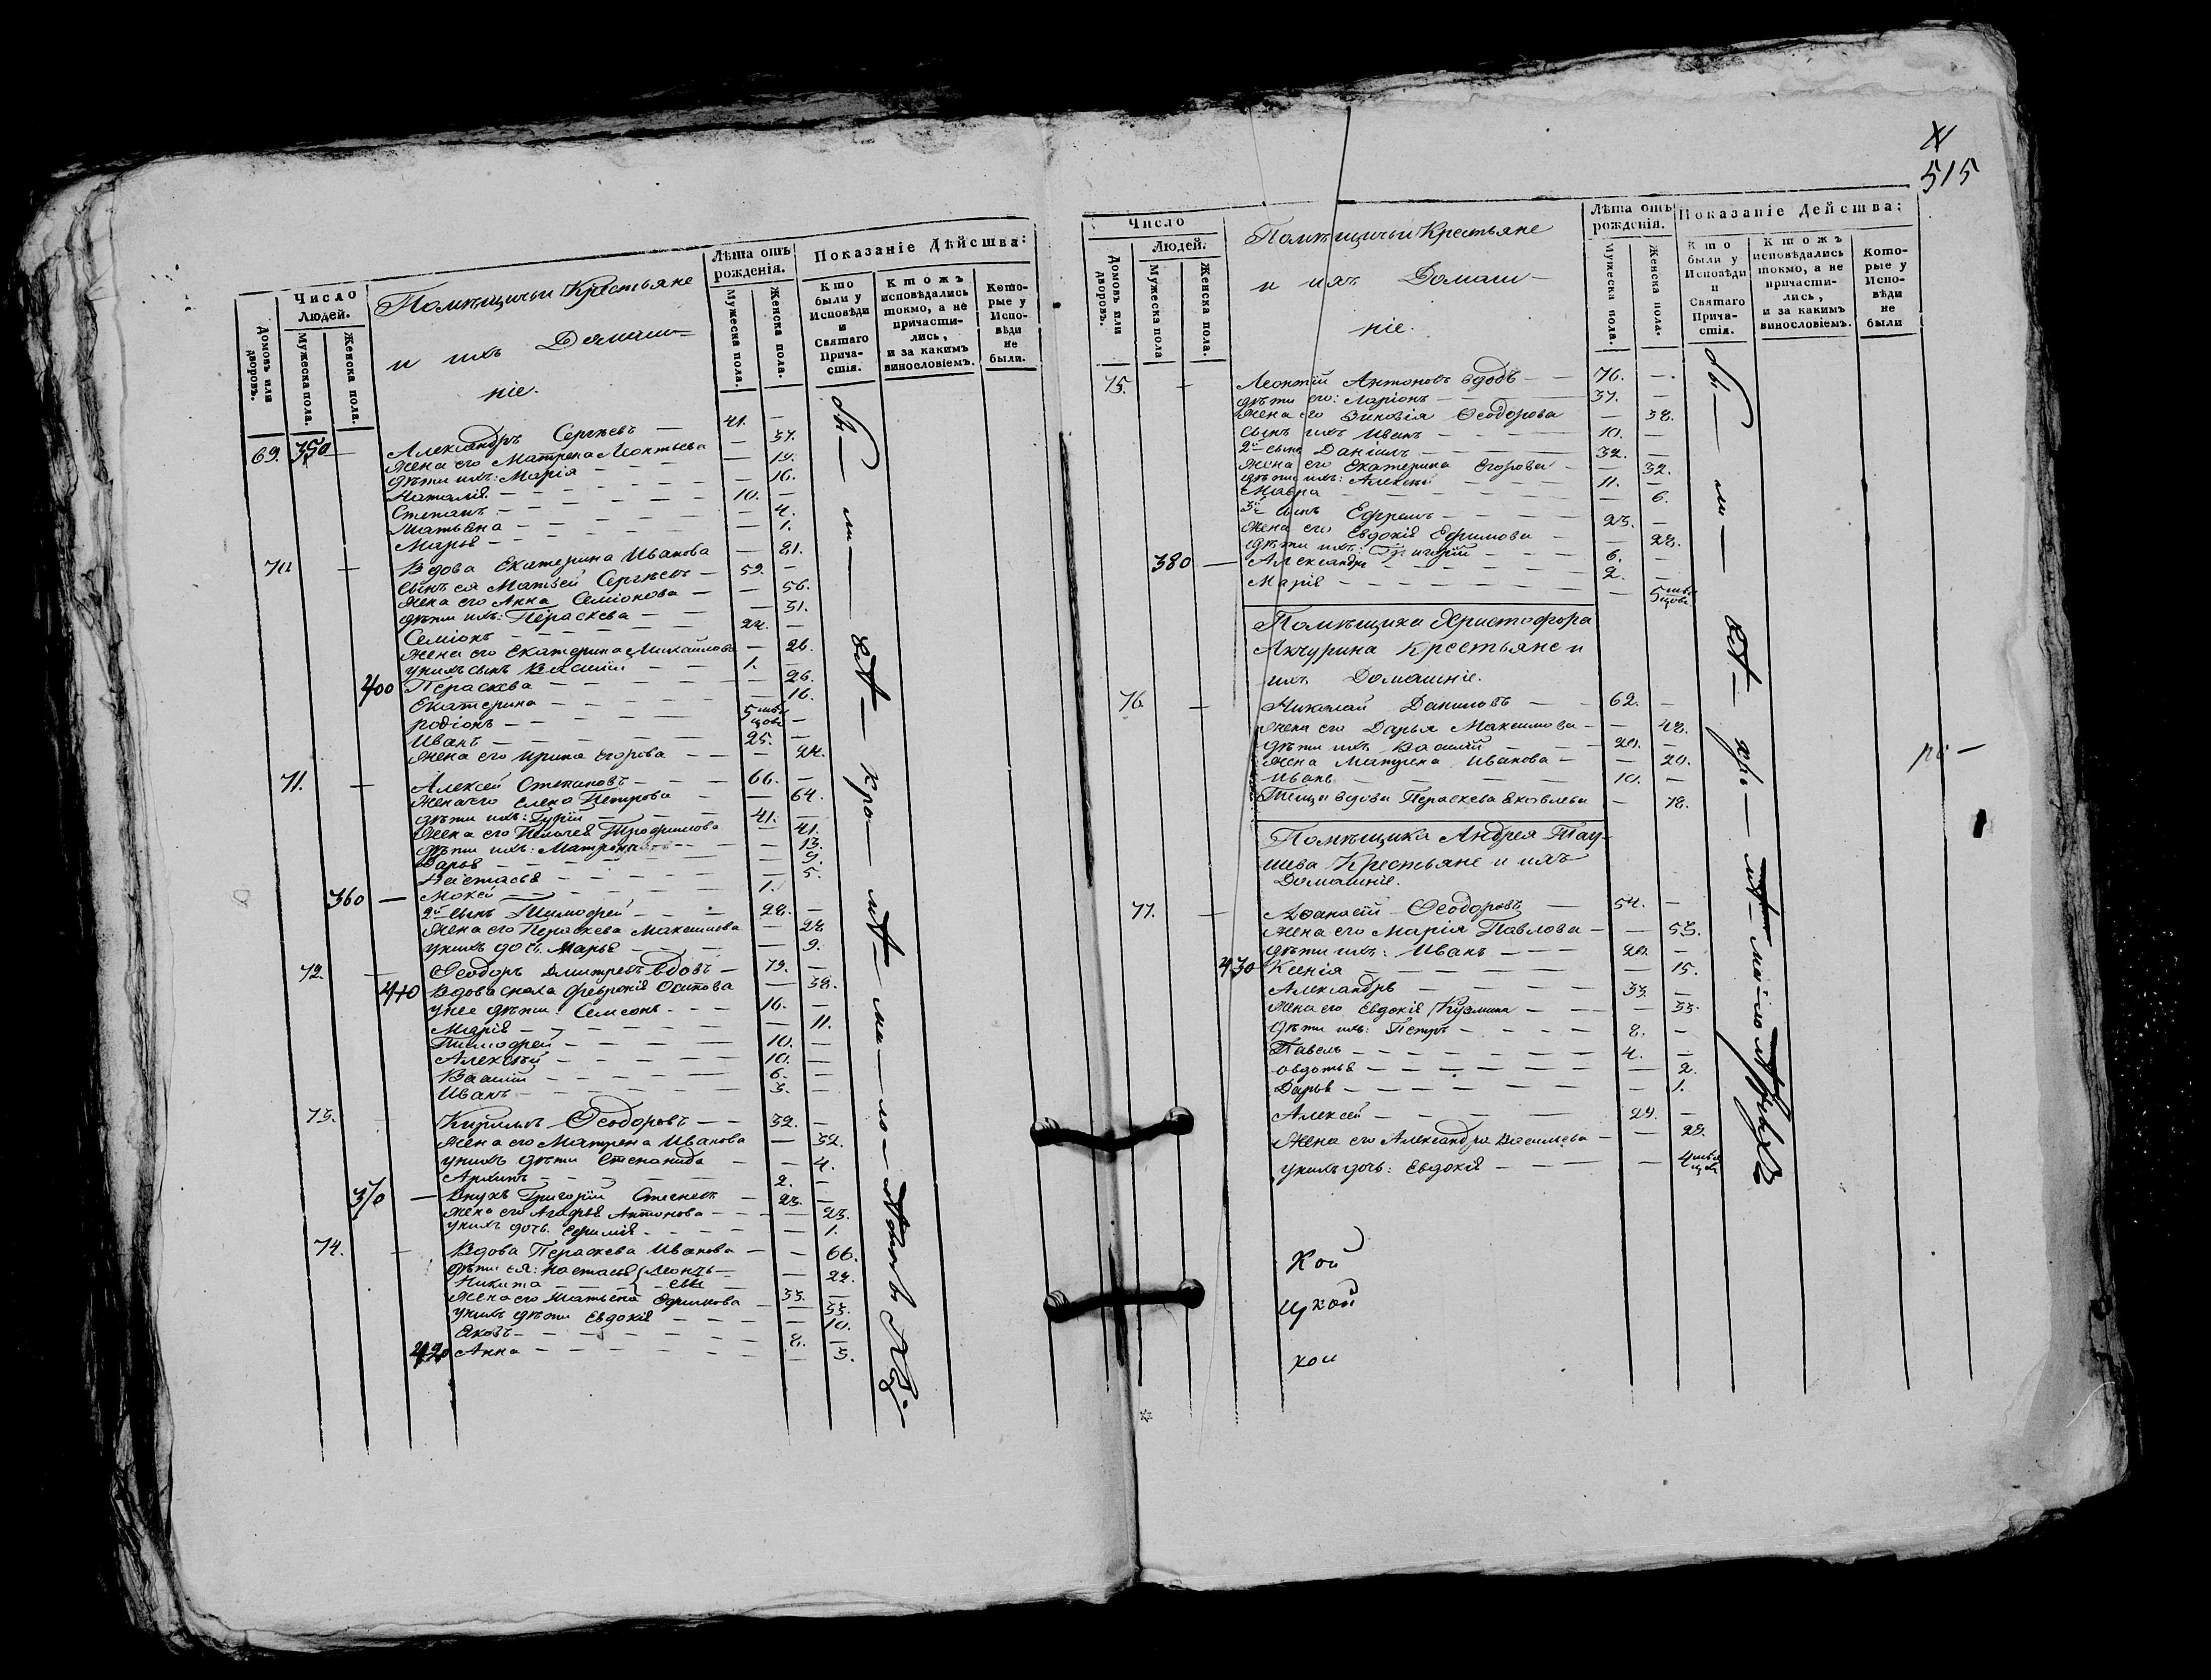 Число
Людей.
Домовъ или дворовъ.
Мужеска пола.
Женска пола.
Помѣщичьи Крестьяне
и ихъ Домаш-
ніе.
Лѣта отъ рожденія.
Мужеска пола.
Женска пола.
Показаніе Дѣйства:
Кто были у Исповѣди и Святаго Причастія.
Ктожъ исповѣдались токмо, а не причастились, и за какимъ винословіемъ.
Которые у Исповѣди не были.
69. 350 — Александръ Сергѣевъ — 41. —
жена его Матрена Леонтьева — 37.
дѣти ихъ: Марія — 19.
Наталія — 16.
Степанъ — 10. —
Татьяна — 4.
Марья — 1.
70. — Вдова Екатерина Иванова — 81.
сынъ ея Матвей Сергѣевъ — 59. —
жена его Анна Семіонова — 56.
дѣти ихъ: Пераскева — 31.
Семіонъ — 24. —
жена его Екатерина Михайлова — 26.
у нихъ сынъ Василій — 1. —
400 Пераскева — 26.
Екатерина — 16.
Родіонъ — 5 —
Иванъ — 25. —
жена его Ирина Егорова — 24.
71. — Алексей Степановъ — 66. —
жена его Елена Петрова — 64.
дѣти ихъ: Гурій — 41. —
жена его Пелагея Трофимова — 41.
дѣти ихъ: Матрона — 13.
Дарья — 9.
Настасья — 5.
360 — Мокей — 1.
2й сынъ Тимофей — 28. —
жена его Пераскева Максимова — 28
у нихъ дочь Марья — 9.
72. — Ѳеодоръ Дмитревъ вдовъ — 79. —
410 Вдова сноха Февронія Осипова — 38.
у нее дѣти: Семсонъ — 16. —
Марія — 11.
Тимофей — 10. —
Алексѣй — 10. —
Василій — 6. —
Иванъ — 3. —
73. Кирилъ Ѳеодоровъ — 32. —
жена его Матрена Иванова — 32.
у нихъ дѣти Степанида — 4.
Архипъ — 2. —
370 — Внукъ Григорій — 23. —
жена его Агафья Антонова — 23.
у нихъ дочь Ефимія — 1.
74. — Вдова Пераскева Иванова — 66.
дѣти ея: Настасья } Леонть- — 24.
Никита — } евы — 33. —
жена его Татьяна Ефимова — 33.
у нихъ дѣти Евдокія — 10.
Яковъ — 8. —
420 Анна — 3.
515
Число
Людей.
Домовъ или дворовъ.
Мужеска пола
Женска пола.
Помѣщичьи Крестьяне
и ихъ Домаш-
ніе.
Лѣта отъ рожденія.
Мужеска пола.
Женска пола.
Показаніе Действа:
Кто были у Исповѣди и Святаго Причастія.
Ктожъ исповѣдались токмо, а не причастились, и за какимъ винословіемъ.
Которые у Исповѣди не были
75. — Леонтій Антоновъ вдовъ — 76. —
дѣти его: Ларіонъ — 37. —
жена его Зиновія Ѳеодорова — 38.
сынъ ихъ Иванъ — 10. —
2й сынъ Даніилъ — 32. —
жена его Екатерина Егорова — 32.
дѣти ихъ: Алексѣй — 11. —
Мавра — 6.
3й сынъ Ефремъ — 23. —
жена его Евдокія Ефимова — 28.
дѣти ихъ: Григорій — 6. —
380 — Александръ — 2. —
Марія — 5
Помѣщика Христофора
Акчурина Крестьяне и
ихъ Домашніе.
76. — Николай Даниловъ — 62. —
жена его Дарья Максимова — 48.
дѣти ихъ Василій — 20. —
жена Матрена Иванова — 20.
Иванъ — 10. —
Теща вдова Пераскева Яковлева — 78.
Помѣщика Андрея Тау-
шева Крестьяне и ихъ
Домашніе.
77. — Аѳанасій Ѳеодоровъ — 54. —
жена его Марія Павлова — 53.
дѣти ихъ: Иванъ — 20. —
430 Ксенія — 15.
Александръ — 33. —
жена его Евдокія Кузмина — 33.
дѣти ихъ: Петръ — 8. —
Павелъ — 4. —
Овдотья — 2.
Дарья — 1.
Алексей — 29. —
жена его Александра Васильева — 28.
у нихъ дочь: Евдокія — 4